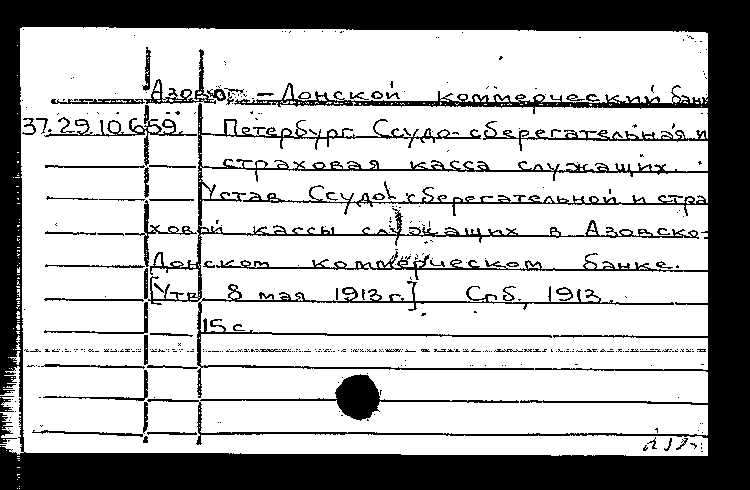 Азово-Донской коммерческий банк
37.29.10.659. Петербург. Ссудо-сберегательная и
страховая касса служащих.
Устав Ссудо-сберегательной и стра
ховой кассы служащих в Азовско-
Донском коммерческом банке.
[Утв. 8 мая 1913 г.] Спб., 1913.
15 с.